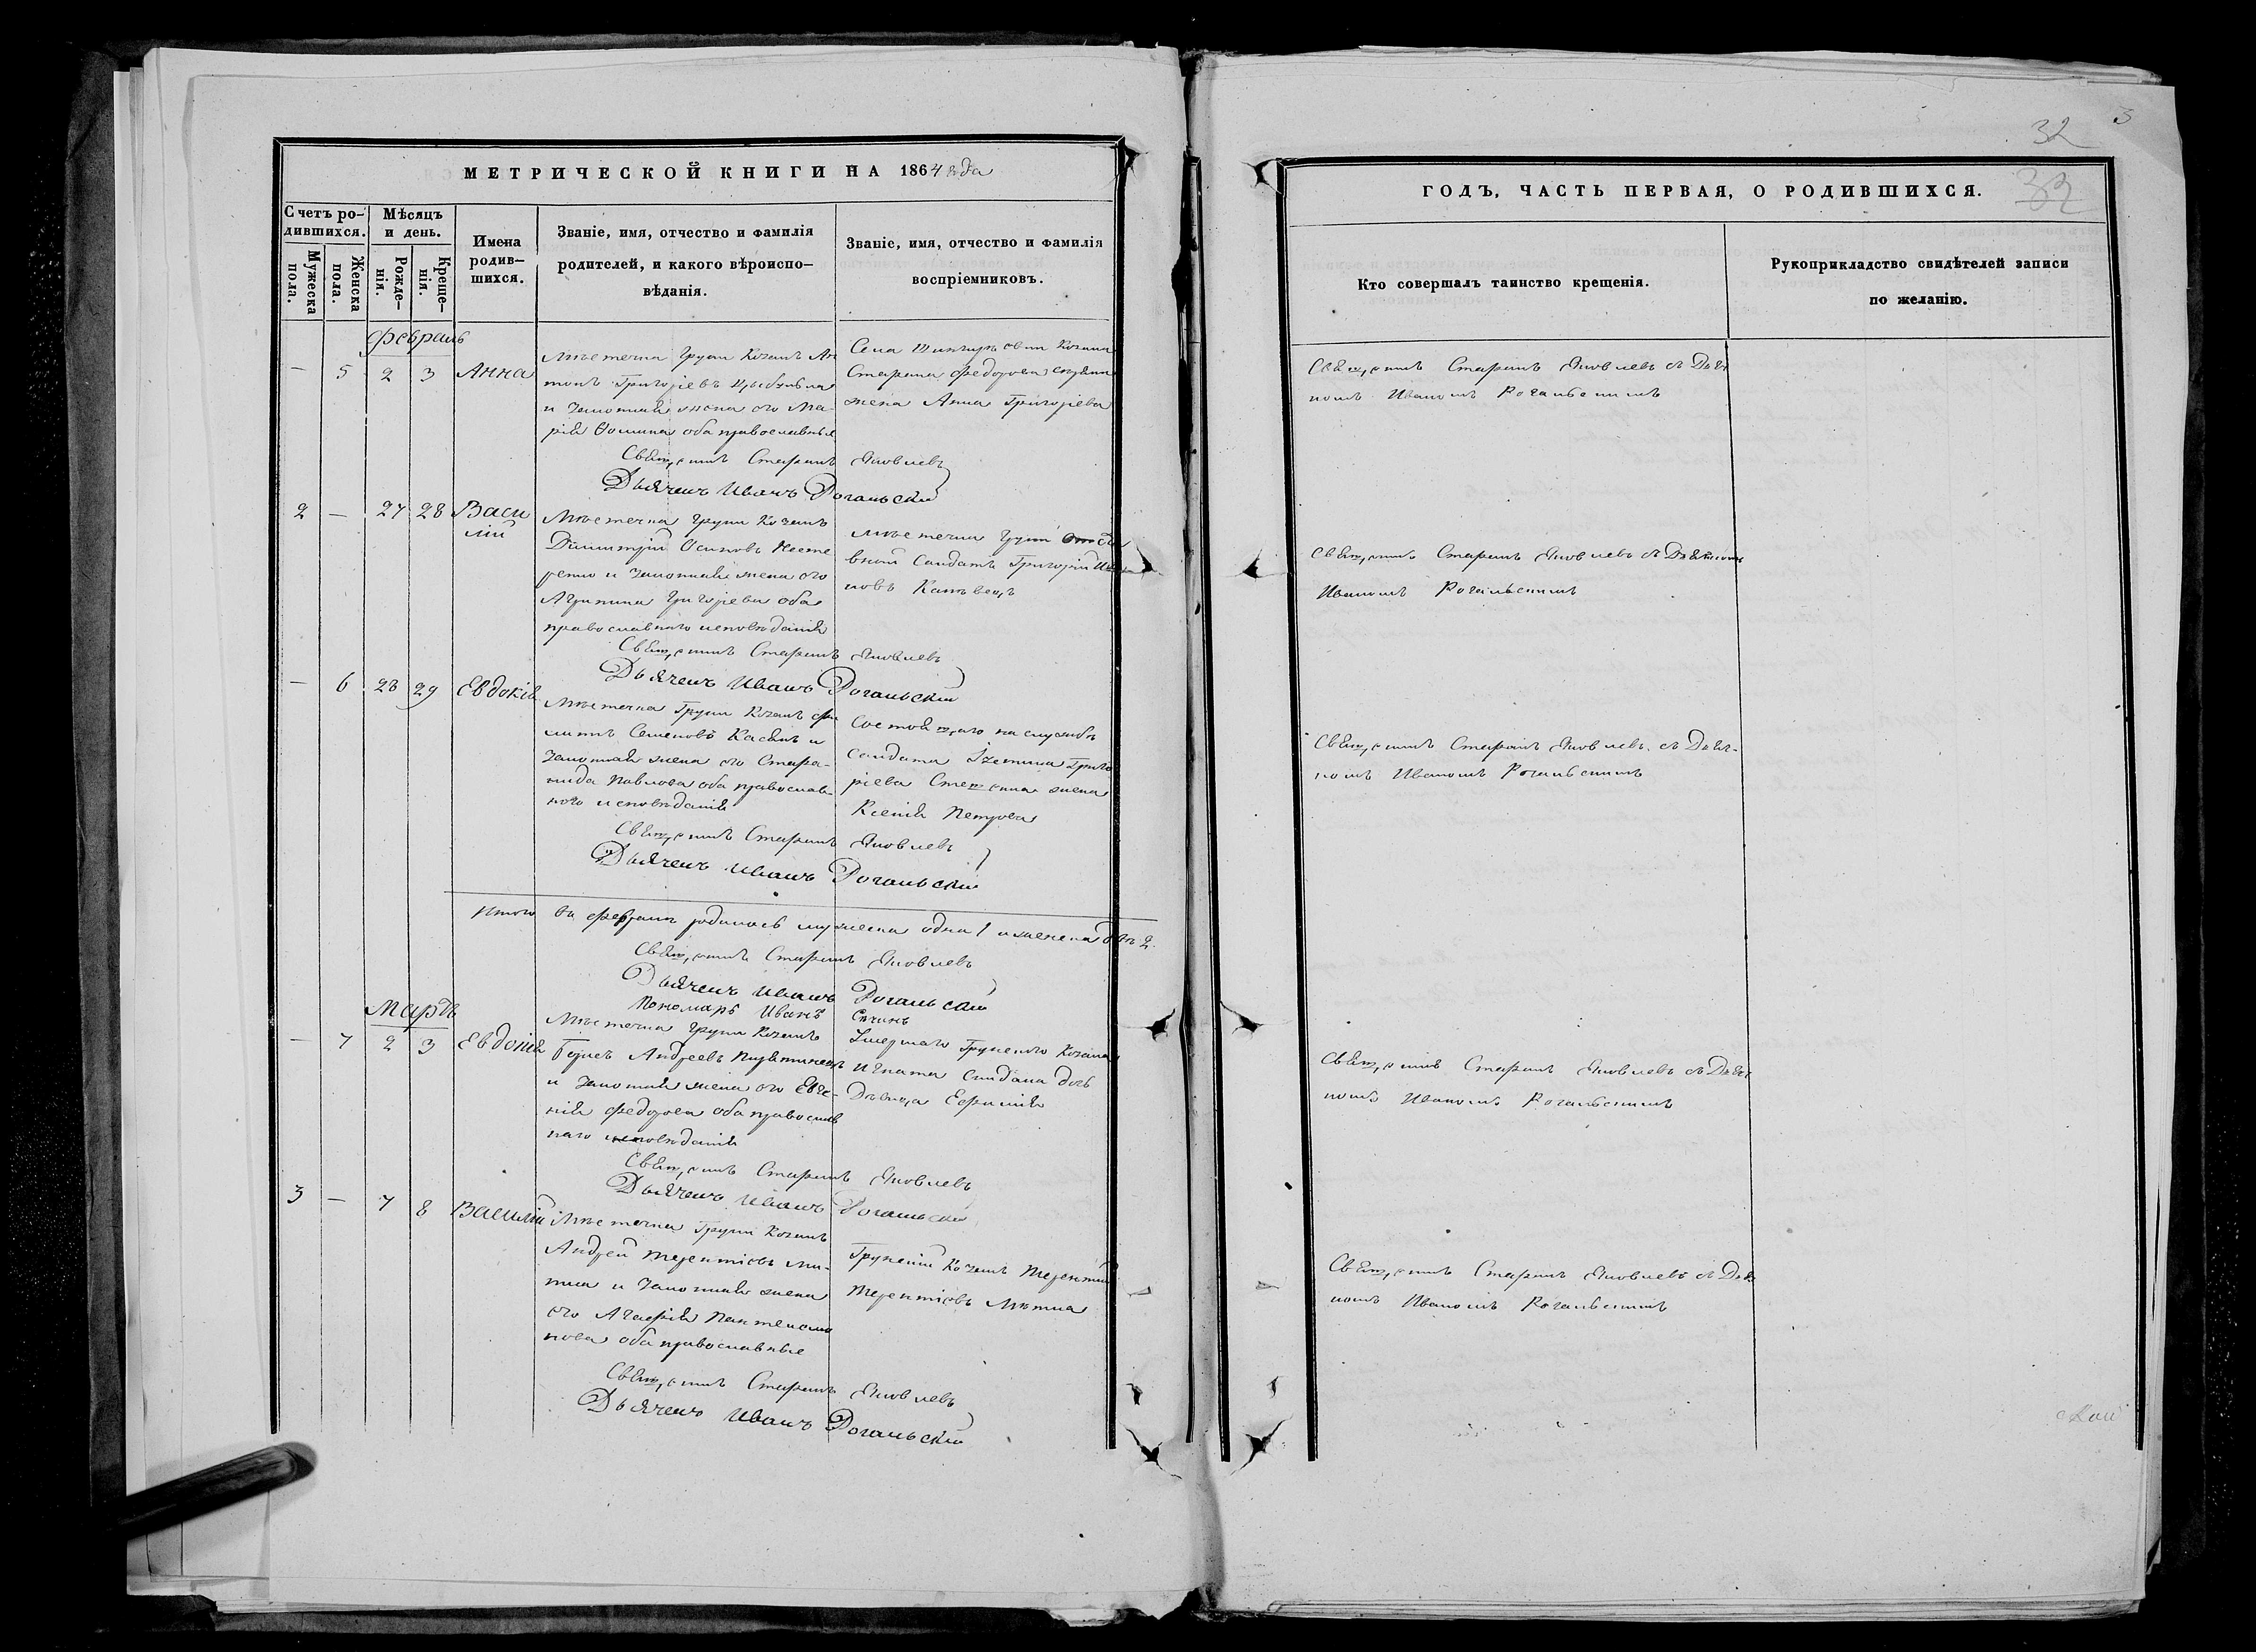 МЕТРИЧЕСКОЙ КНИГИ НА 1864 года
Счетъ ро-
дившихся.
Мужеска
пола.
Женска
пола.
Мѣсяцъ
и день.
Рожде-
нія.
Креще-
нія.
Имена
родив-
шихся.
Званіе, имя, отчество и фамилія
родителей, и какого вѣроиспо-
вѣданія.
Званіе, имя, отчество и фамилія
воспріемниковъ.
Февраль
— 5 2 3 Анна
Мѣстечка Груни Козакъ Ан
тонъ Григорьевъ
и законная жена его Ма-
рія Фомина оба православные
Села Козака
Стефана Федорова
жена Анна Григорьева
Священникъ Стефанъ Яковлевъ
Дьячекъ Иванъ Рогальскій
2 — 27 28 Васи
лій
Мѣстечка Груни Козакъ
Димитрій Осиповъ Несте
ренко и законная жена его
Агрипина Григорьева оба
православнаго исповѣданія
мѣстечка Груни
Солдатъ Григорій
новъ
Священникъ Стефанъ Яковлевъ
Дьячекъ Иванъ Рогальскій
— 6 28 29 Евдокія
Мѣстечка Груни Козакъ Фи
липъ Семеновъ Касьянъ и
законная жена его Стефа-
нида Павлова оба православ-
ного исповѣданія
Состоящаго на службѣ
Солдата Григо
ріева жена
Ксенія Петрова
Священникъ Стефанъ Яковлевъ
Дьячекъ Иванъ Рогальскій
Итого въ февралѣ родилось мужеска одна 1 и женска двѣ 2.
Священникъ Стефанъ Яковлевъ
Дьячекъ Иванъ Рогальскій
Пономарь Иванъ
Мартъ
— 7 2 3 Евдокія
Мѣстечка Груни Козакъ
Андреевъ
и законная жена его Евге-
нія Федорова оба православ
наго исповѣданія
Умершаго Грунского Козака
Игната дочь
Дѣвица Ефимія
Священникъ Стефанъ Яковлевъ
Дьячекъ Иванъ Рогальскій
3 — 7 8 Василій
Мѣстечка Груни Козакъ
Андрей Терентіевъ Ми-
тла и законная жена
его Агафія Пантелеимо
нова оба православные
Грунскій Козакъ Терентій
Терентіевъ Митла
Священникъ Стефанъ Яковлевъ
Дьячекъ Иванъ Рогальскій
32
3
32
ГОДЪ, ЧАСТЬ ПЕРВАЯ, О РОДИВШИХСЯ.
Кто совершалъ таинство крещенія.
Рукоприкладство свидѣтелей записи
по желанію.
Священникъ Стефанъ Яковлевъ съ Дьяч
комъ Иваномъ Рогальскимъ
Священникъ Стефанъ Яковлевъ съ Дьячкомъ
Иваномъ Рогальскимъ
Священникъ Стефанъ Яковлевъ съ Дьяч-
комъ Иваномъ Рогальскимъ
Священникъ Стефанъ Яковлевъ съ Дьяч
комъ Иваномъ Рогальскимъ
Священникъ Стефанъ Яковлевъ съ Дьяч
комъ Иваномъ Рогальскимъ